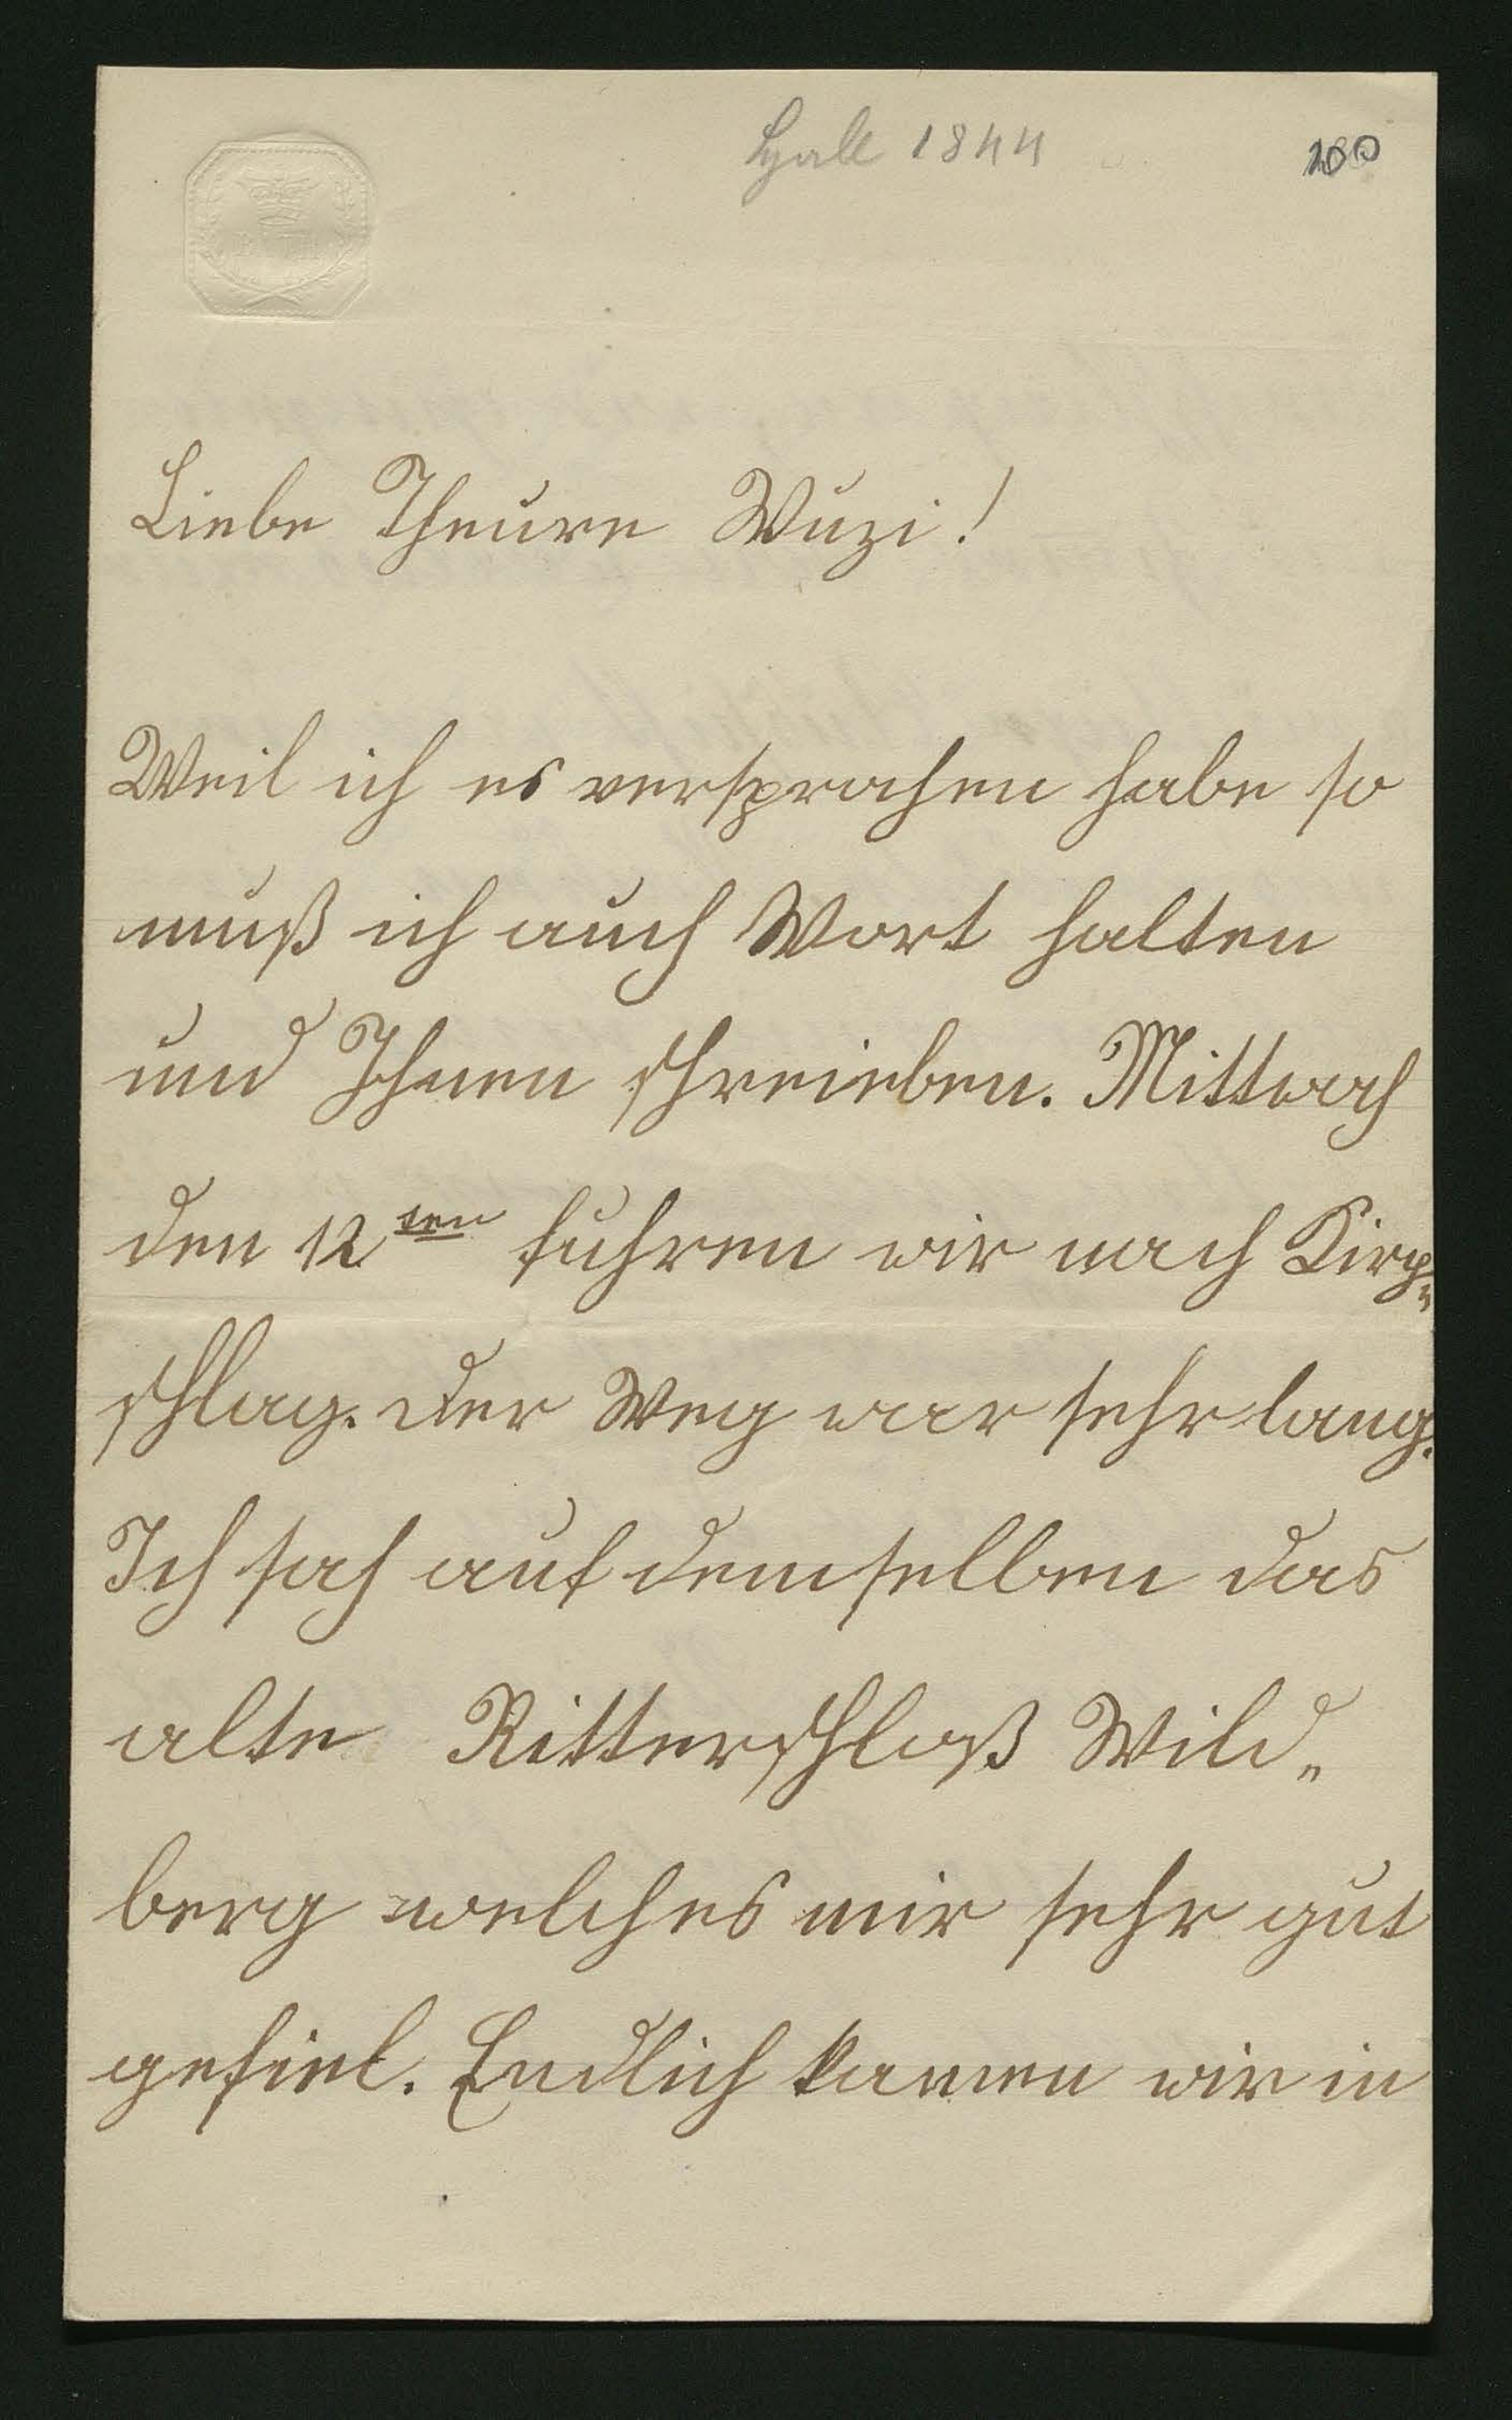 Hall 1844
100
Liebe Theure Wuzi!
Weil ich es versprochen habe so
muß ich auch Wort halten
und Ihnen schreieben. Mittwoch
den 12ten fuhren wir nach Kirch„
schlag. der Weg war sehr lang.
Ich sah auf demselben das
alte Ritterschloß Wild„
berg welches mir sehr gut
gefiel. Endlich kamen wir in